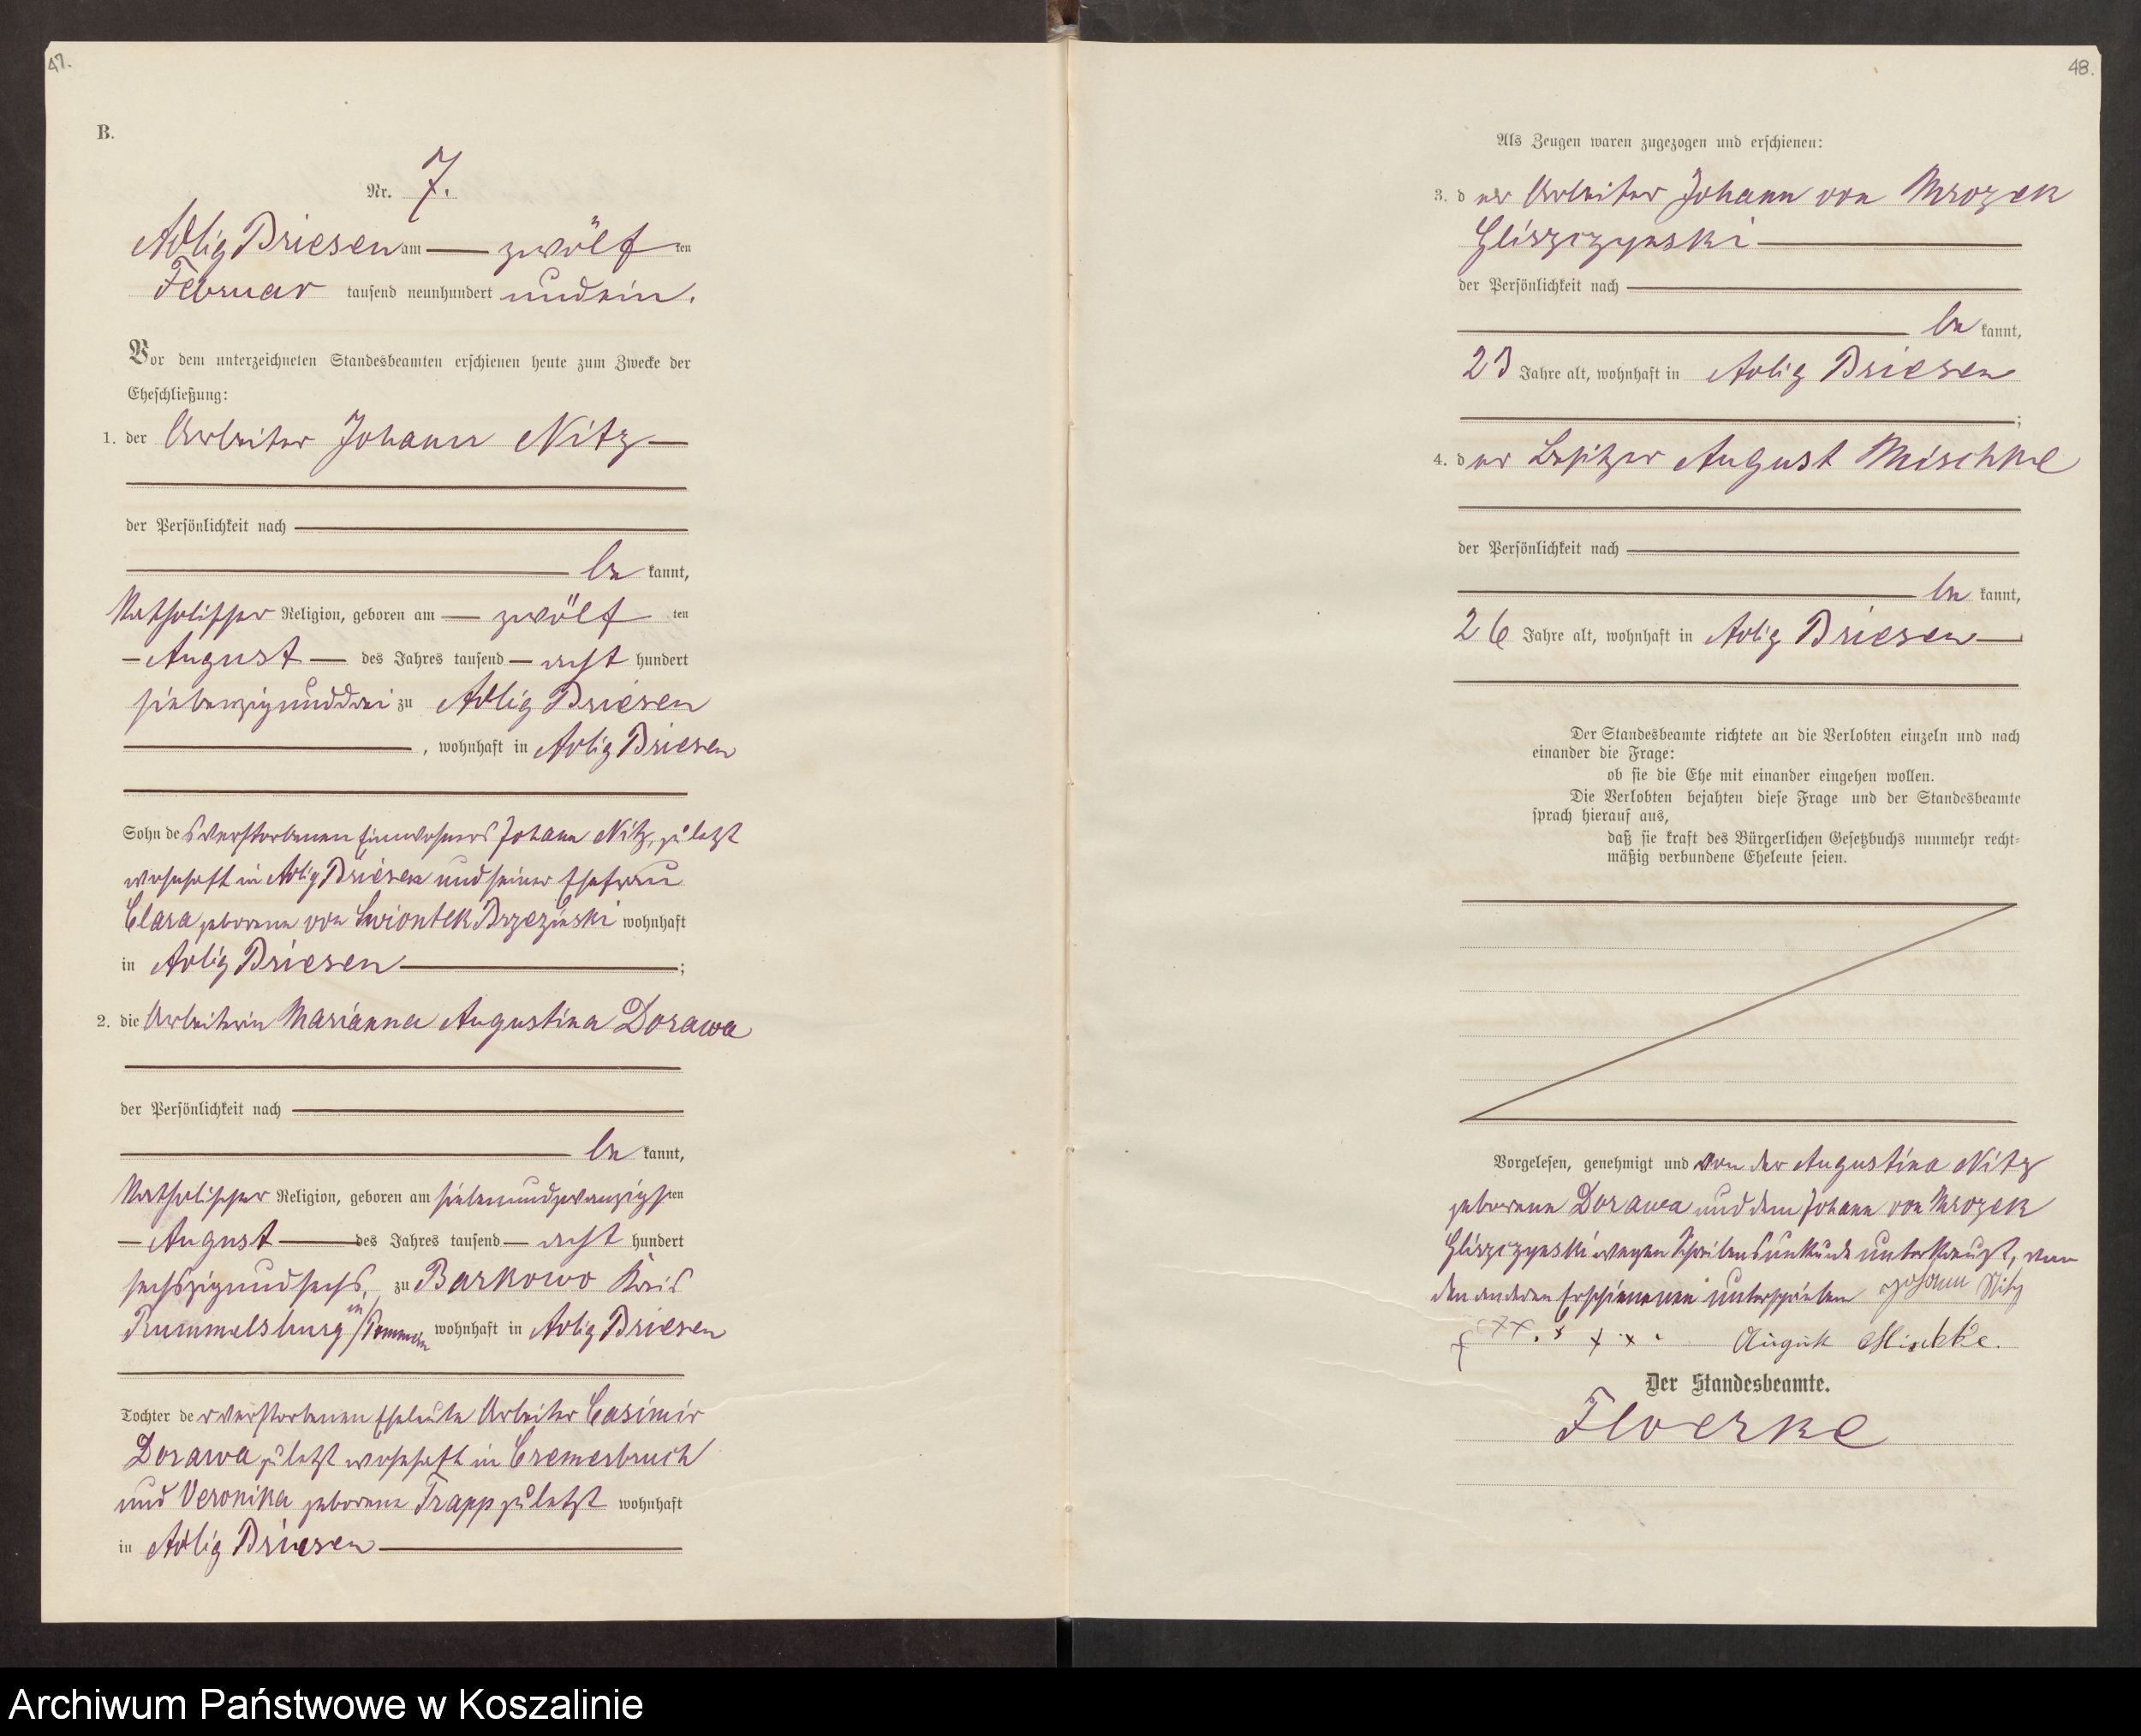 47.
B.
Nr. 7.
Adlig Briesen am zwölf ten
Februar tausend neunhundert undein.
Vor dem unterzeichneten Standesbeamten erschienen heute zum Zwecke der
Eheschließung:
1. der Arbeiter Johann Nitz
der Persönlichkeit nach
be kannt,
katholischer Religion, geboren am zwölf ten
August des Jahres tausend acht hundert
siebenzigunddrei zu Adlig Briesen
, wohnhaft in Adlig Briesen
Sohn des verstorbenen Einwohners Johann Nitz, zuletzt
wohnhaft in Adlig Briesen und seiner Ehefrau
Clara geborene von Swiontek Brzezinski wohnhaft
in Adlig Briesen ;
2. die Arbeiterin Marianna Augustina Dorawa
der Persönlichkeit nach
be kannt,
katholischer Religion, geboren am siebenundzwanzigsten
August des Jahres tausend acht hundert
sechszigundsechs, zu Barkowo Kreis
Rummelsburg in/Pommern wohnhaft in Adlig Briesen
Tochter der verstorbenen Eheleute Arbeiter Casimir
Dorawa zuletzt wohnhaft in Cremerbruch
und Veronika geborene Trapp zuletzt wohnhaft
in Adlig Briesen
48.
Als Zeugen waren zugezogen und erschienen:
3. der Arbeiter Johann von Mrozek
Gliszczynski
der Persönlichkeit nach
be kannt,
23 Jahre alt, wohnhaft in Adlig Briesen
;
4. der Besitzer August Mischke
der Persönlichkeit nach
be kannt,
26 Jahre alt, wohnhaft in Adlig Briesen
Der Standesbeamte richtete an die Verlobten einzeln und nach
einander die Frage:
ob sie die Ehe mit einander eingehen wollen.
Die Verlobten bejahten diese Frage und der Standesbeamte
sprach hierauf aus,
daß sie kraft des Bürgerlichen Gesetzbuchs nunmehr recht-
mäßig verbundene Eheleute seien.
Vorgelesen, genehmigt und von der Augustina Nitz
geborene Dorawa und dem Johann von Mrozek
Gliszczynski wegen Schreibensunkunde unterkreuzt, von
den anderen Erschienenen unterschrieben Johann Nitz
+ x x x + x x August Mischke.
Der Standesbeamte.
Floerke
Archiwum Państwowe w Koszalinie